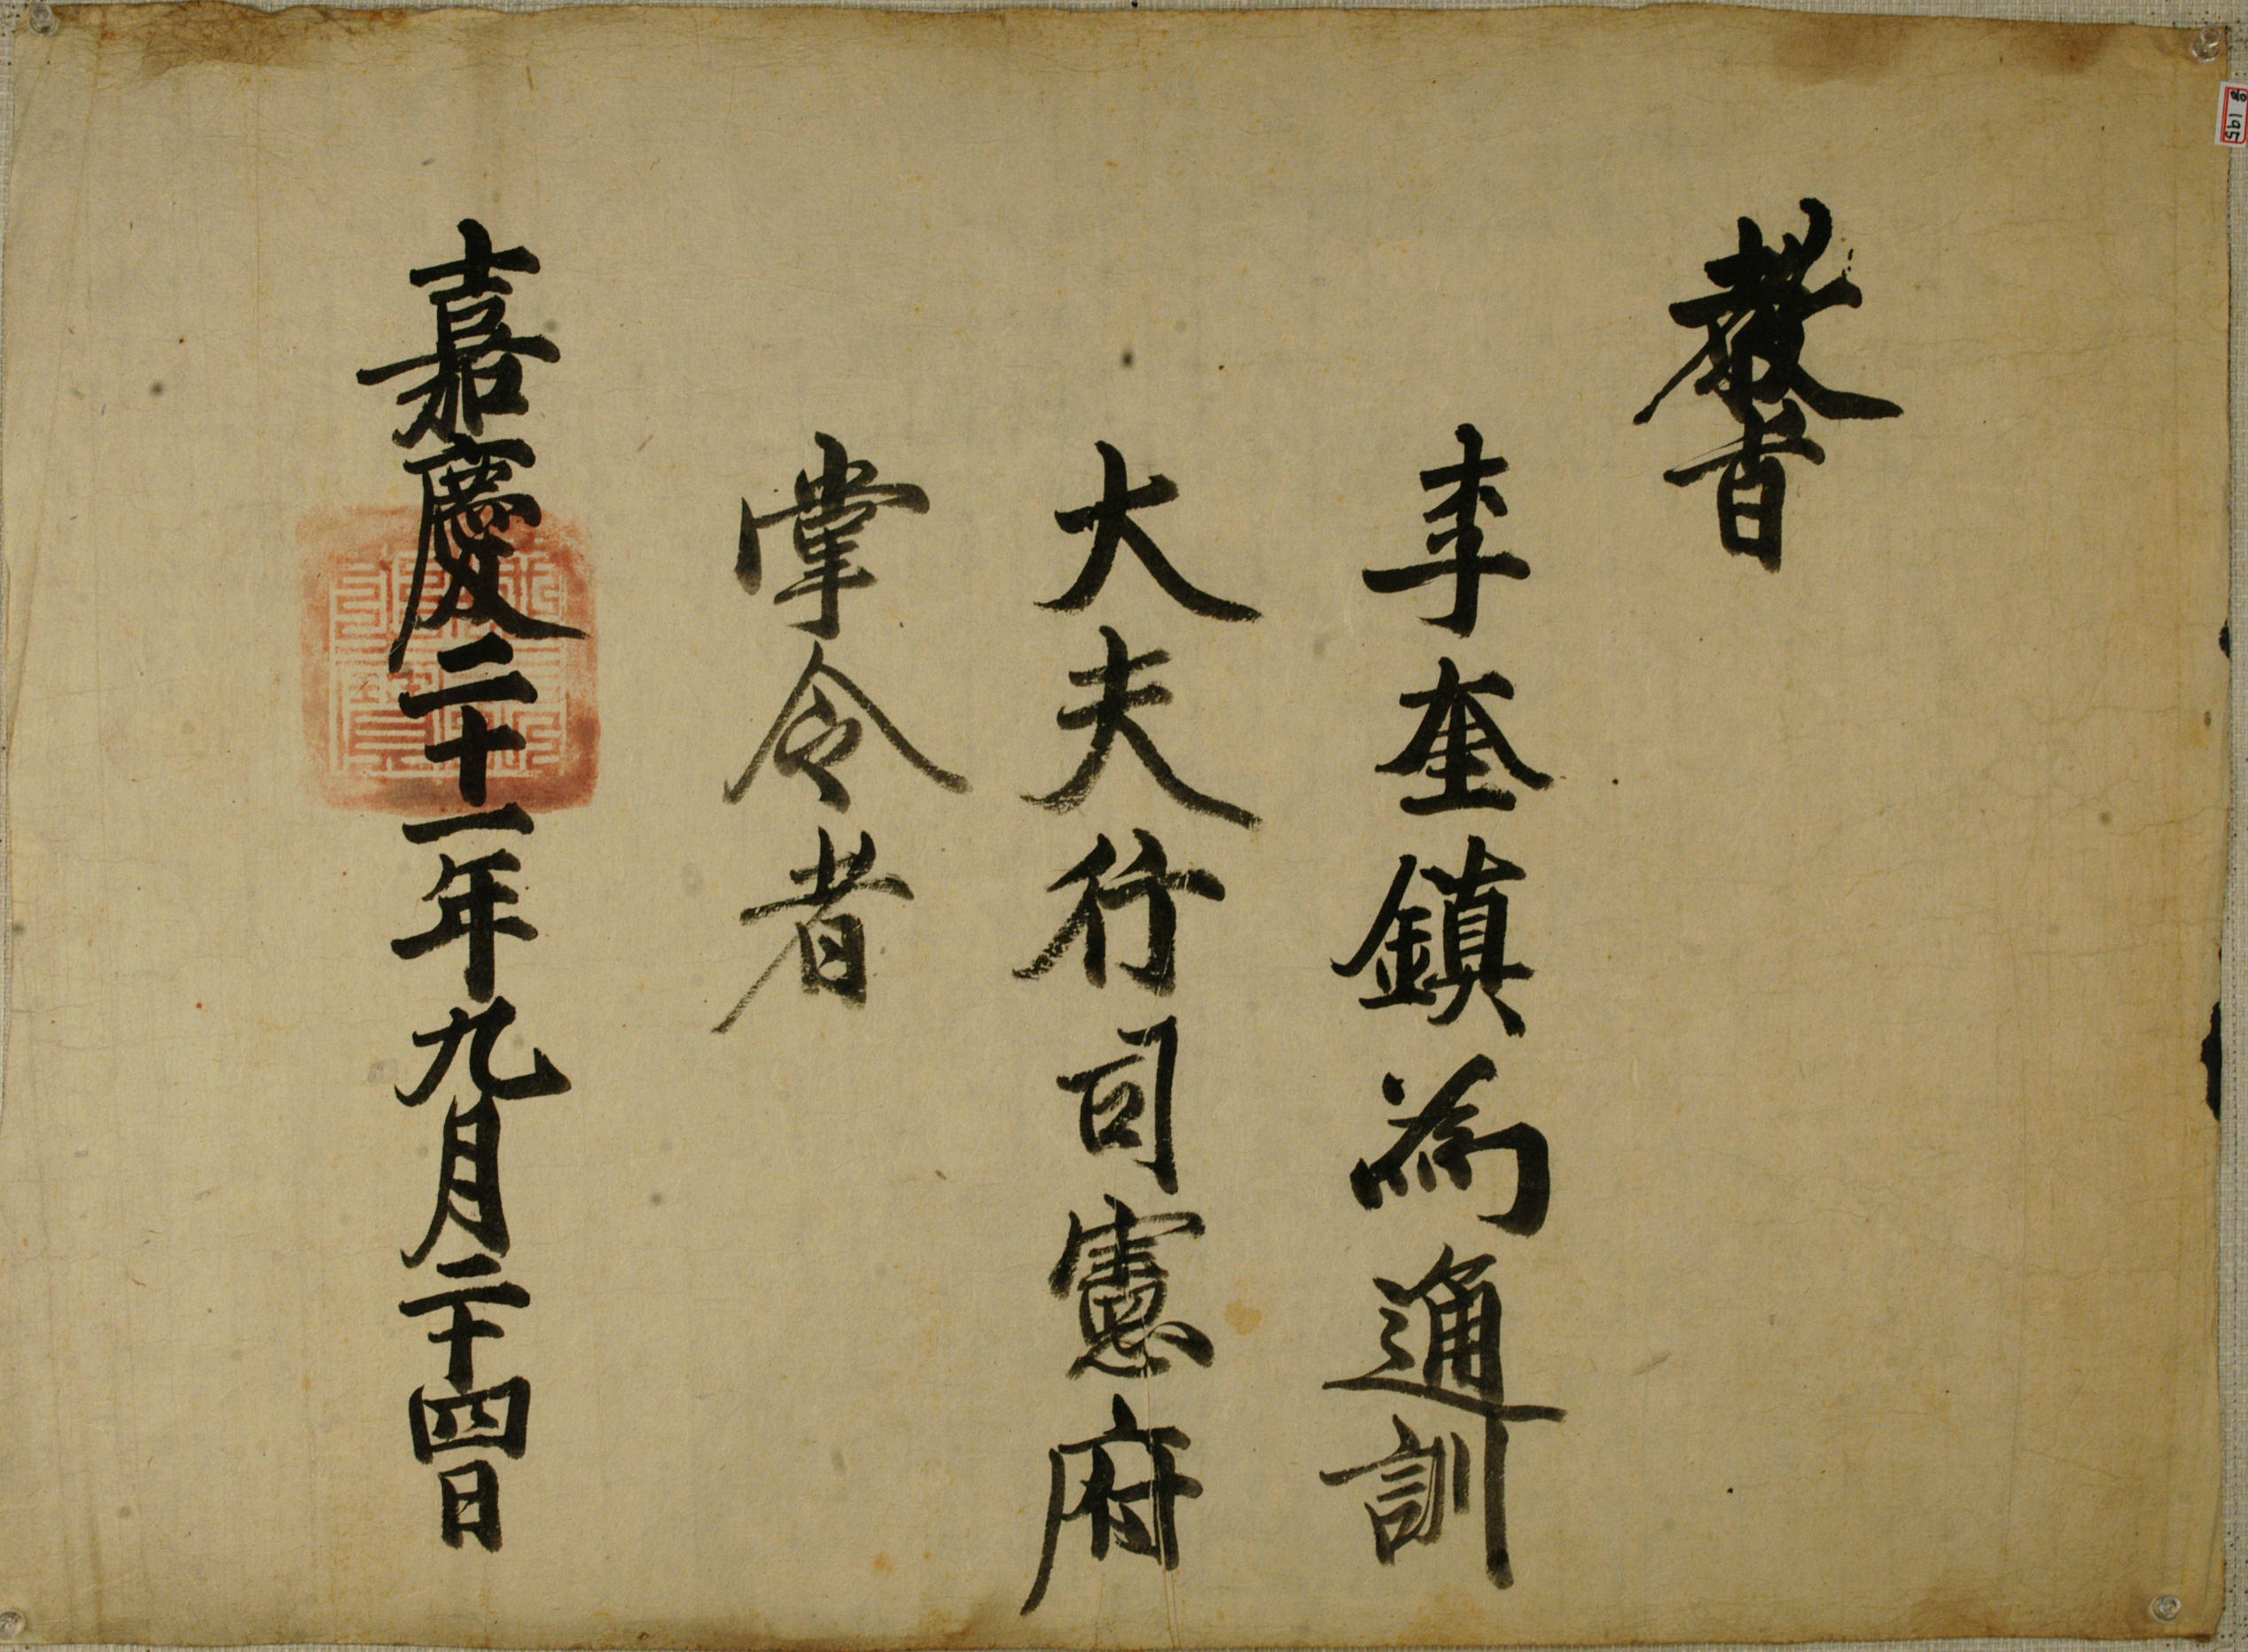 教旨
李奎鎮為通訓
大夫行司憲府
掌令者
嘉慶二十一年九月二十四日
195